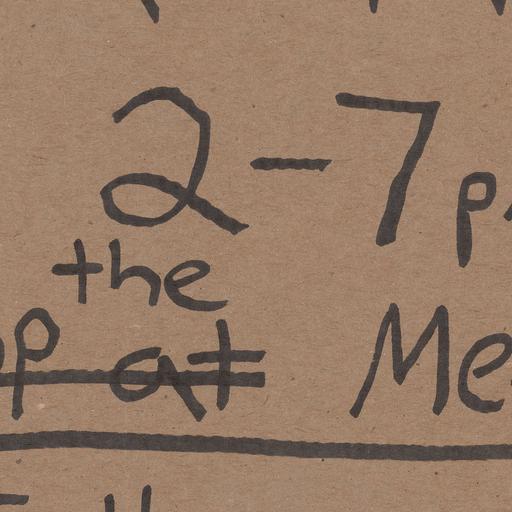 2-7 p
the
op at Me